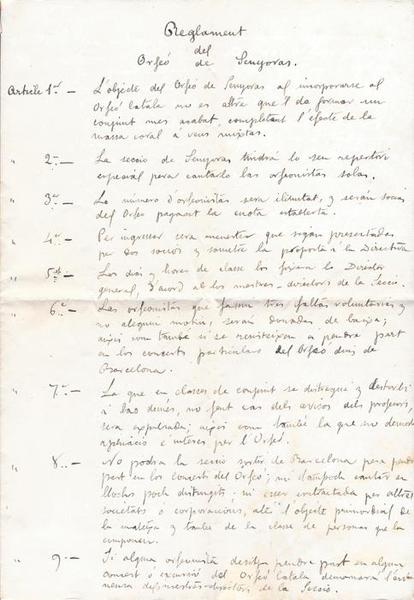 Reglament
del
Orfeó de Senyoras.
Article 1er — L'objecte del Orfeó de Senyoras al incorporarse al
Orfeó Catalá no es altre que l de formar un
conjunt mes acabat, completant l'efecte de la
massa coral á veus mixtas.
" 2n — La secció de Senyoras tindrá lo seu repertori
especial pera cantarlo las orfeonistas solas.
" 3r — Lo número d'orfeonistas será ilimitat, y serán socias
del Orfeó pagant la cuota establerta.
" 4t — Per ingressar será menester que sigan presentadas
per dos socios y sometre la proposta á la Directiva.
" 5é — Los dias y horas de classe los fixará lo Director
general, d'acord ab los mestres-directors de la Secció.
" 6é — Las orfeonistas que fassin tres faltas voluntarias y
no aleguin motiu, serán donadas de baixa;
aixís com també si se resisteixen a pendre part
en los concerts particulars del Orfeó dins de
Barcelona.
" 7 — La que en classes de conjunt se distregui y destorbi
á las demés, no fent cas dels avisos dels professors,
será expulsada; aixís com també la que no demostri
aplicació é interés per l'Orfeó.
" 8 — No podrá la secció sortir de Barcelona pera pendre
part en los concerts del Orfeó; ni tampoch cantar en
llochs poch distingits, ni esser contractada per altres
societats o corporacions, atés l'objecte primordial de
la mateixa y tantes de la classe de personas que la
componen.
" 9 — Si alguna orfeonista desitja pendre part en algun
concert o excursió del Orfeó Catalá demanará l'
dels mestres-directors de la Secció.